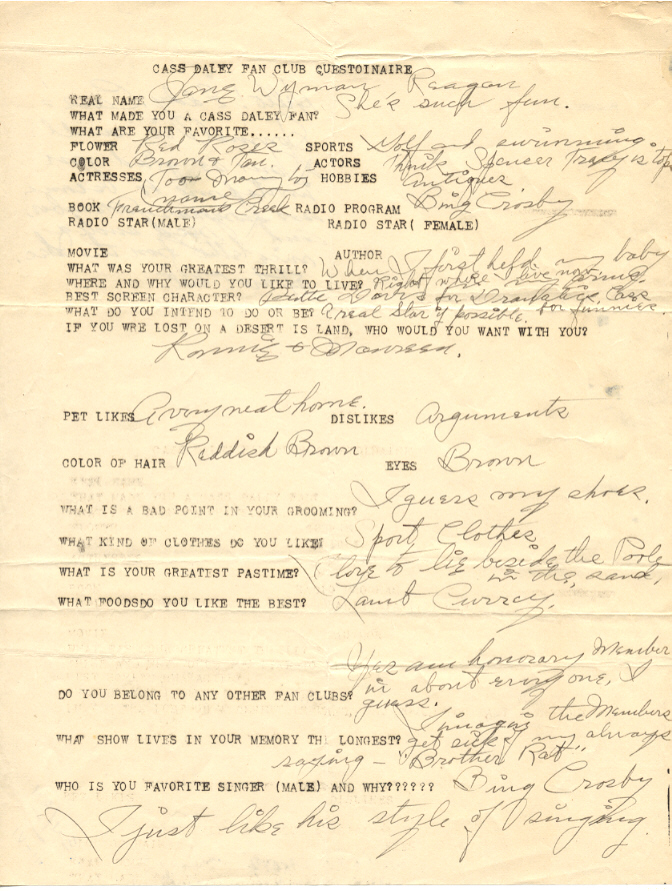 CASS DALEY FAN CLUB QUESTOINAIRE
REAL NAME Jane Wyman Reagan
WHAT MADE YOU A CASS DALEY FAN? She's such fun.
WHAT ARE YOUR FAVORITE......
FLOWER Red Roses SPORTS Golf and swimming.
COLOR Brown & Tan. ACTORS think Spencer Tracy is tops
ACTRESSES Too Many to name HOBBIES Antiques
BOOK Frenchman's Creek RADIO PROGRAM Bing Crosby
RADIO STAR(MALE) RADIO STAR( FEMALE)
MOVIE AUTHOR
WHAT WAS YOUR GREATEST THRILL? When I first held my baby
WHERE AND WHY WOULD YOU LIKE TO LIVE? Right where I live now. in my arms.
BEST SCREEN CHARACTER? Bette Davis for Dramatics, Cass
WHAT DO YOU INTEND TO DO OR BE? A real Star if possible. for funnies.
IF YOU WRE LOST ON A DESERT IS LAND, WHO WOULD YOU WANT WITH YOU?
Ronnie & Maureen.
PET LIKES A very neat home. DISLIKES Arguments
COLOR OF HAIR Reddish Brown EYES Brown
WHAT IS A BAD POINT IN YOUR GROOMING? I guess my shoes.
WHAT KIND OF CLOTHES DO YOU LIKE? Sport Clothes
WHAT IS YOUR GREATEST PASTIME? I love to lie beside the Pool,
in the sand,
WHAT FOODSDO YOU LIKE THE BEST? Lamb Currey.
Yes am honorary Member
DO YOU BELONG TO ANY OTHER FAN CLUBS? in about everyone, I
guess.
I imagin the Members
WHAT SHOW LIVES IN YOUR MEMORY THE LONGEST? get sick of my always
saying - "Brother Rat"
WHO IS YOU FAVORITE SINGER (MALE) AND WHY?????? Bing Crosby
I just like his style of singing.